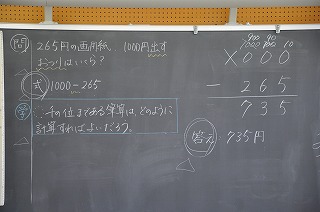 問 265円の画用紙。1000円出す
おつりはいくら?
式 1000-265
学 千の位まである筆算は、どのように
計算すればよいだろう。
900 90
1000 100 10
X000
- 265
735
答え 735円